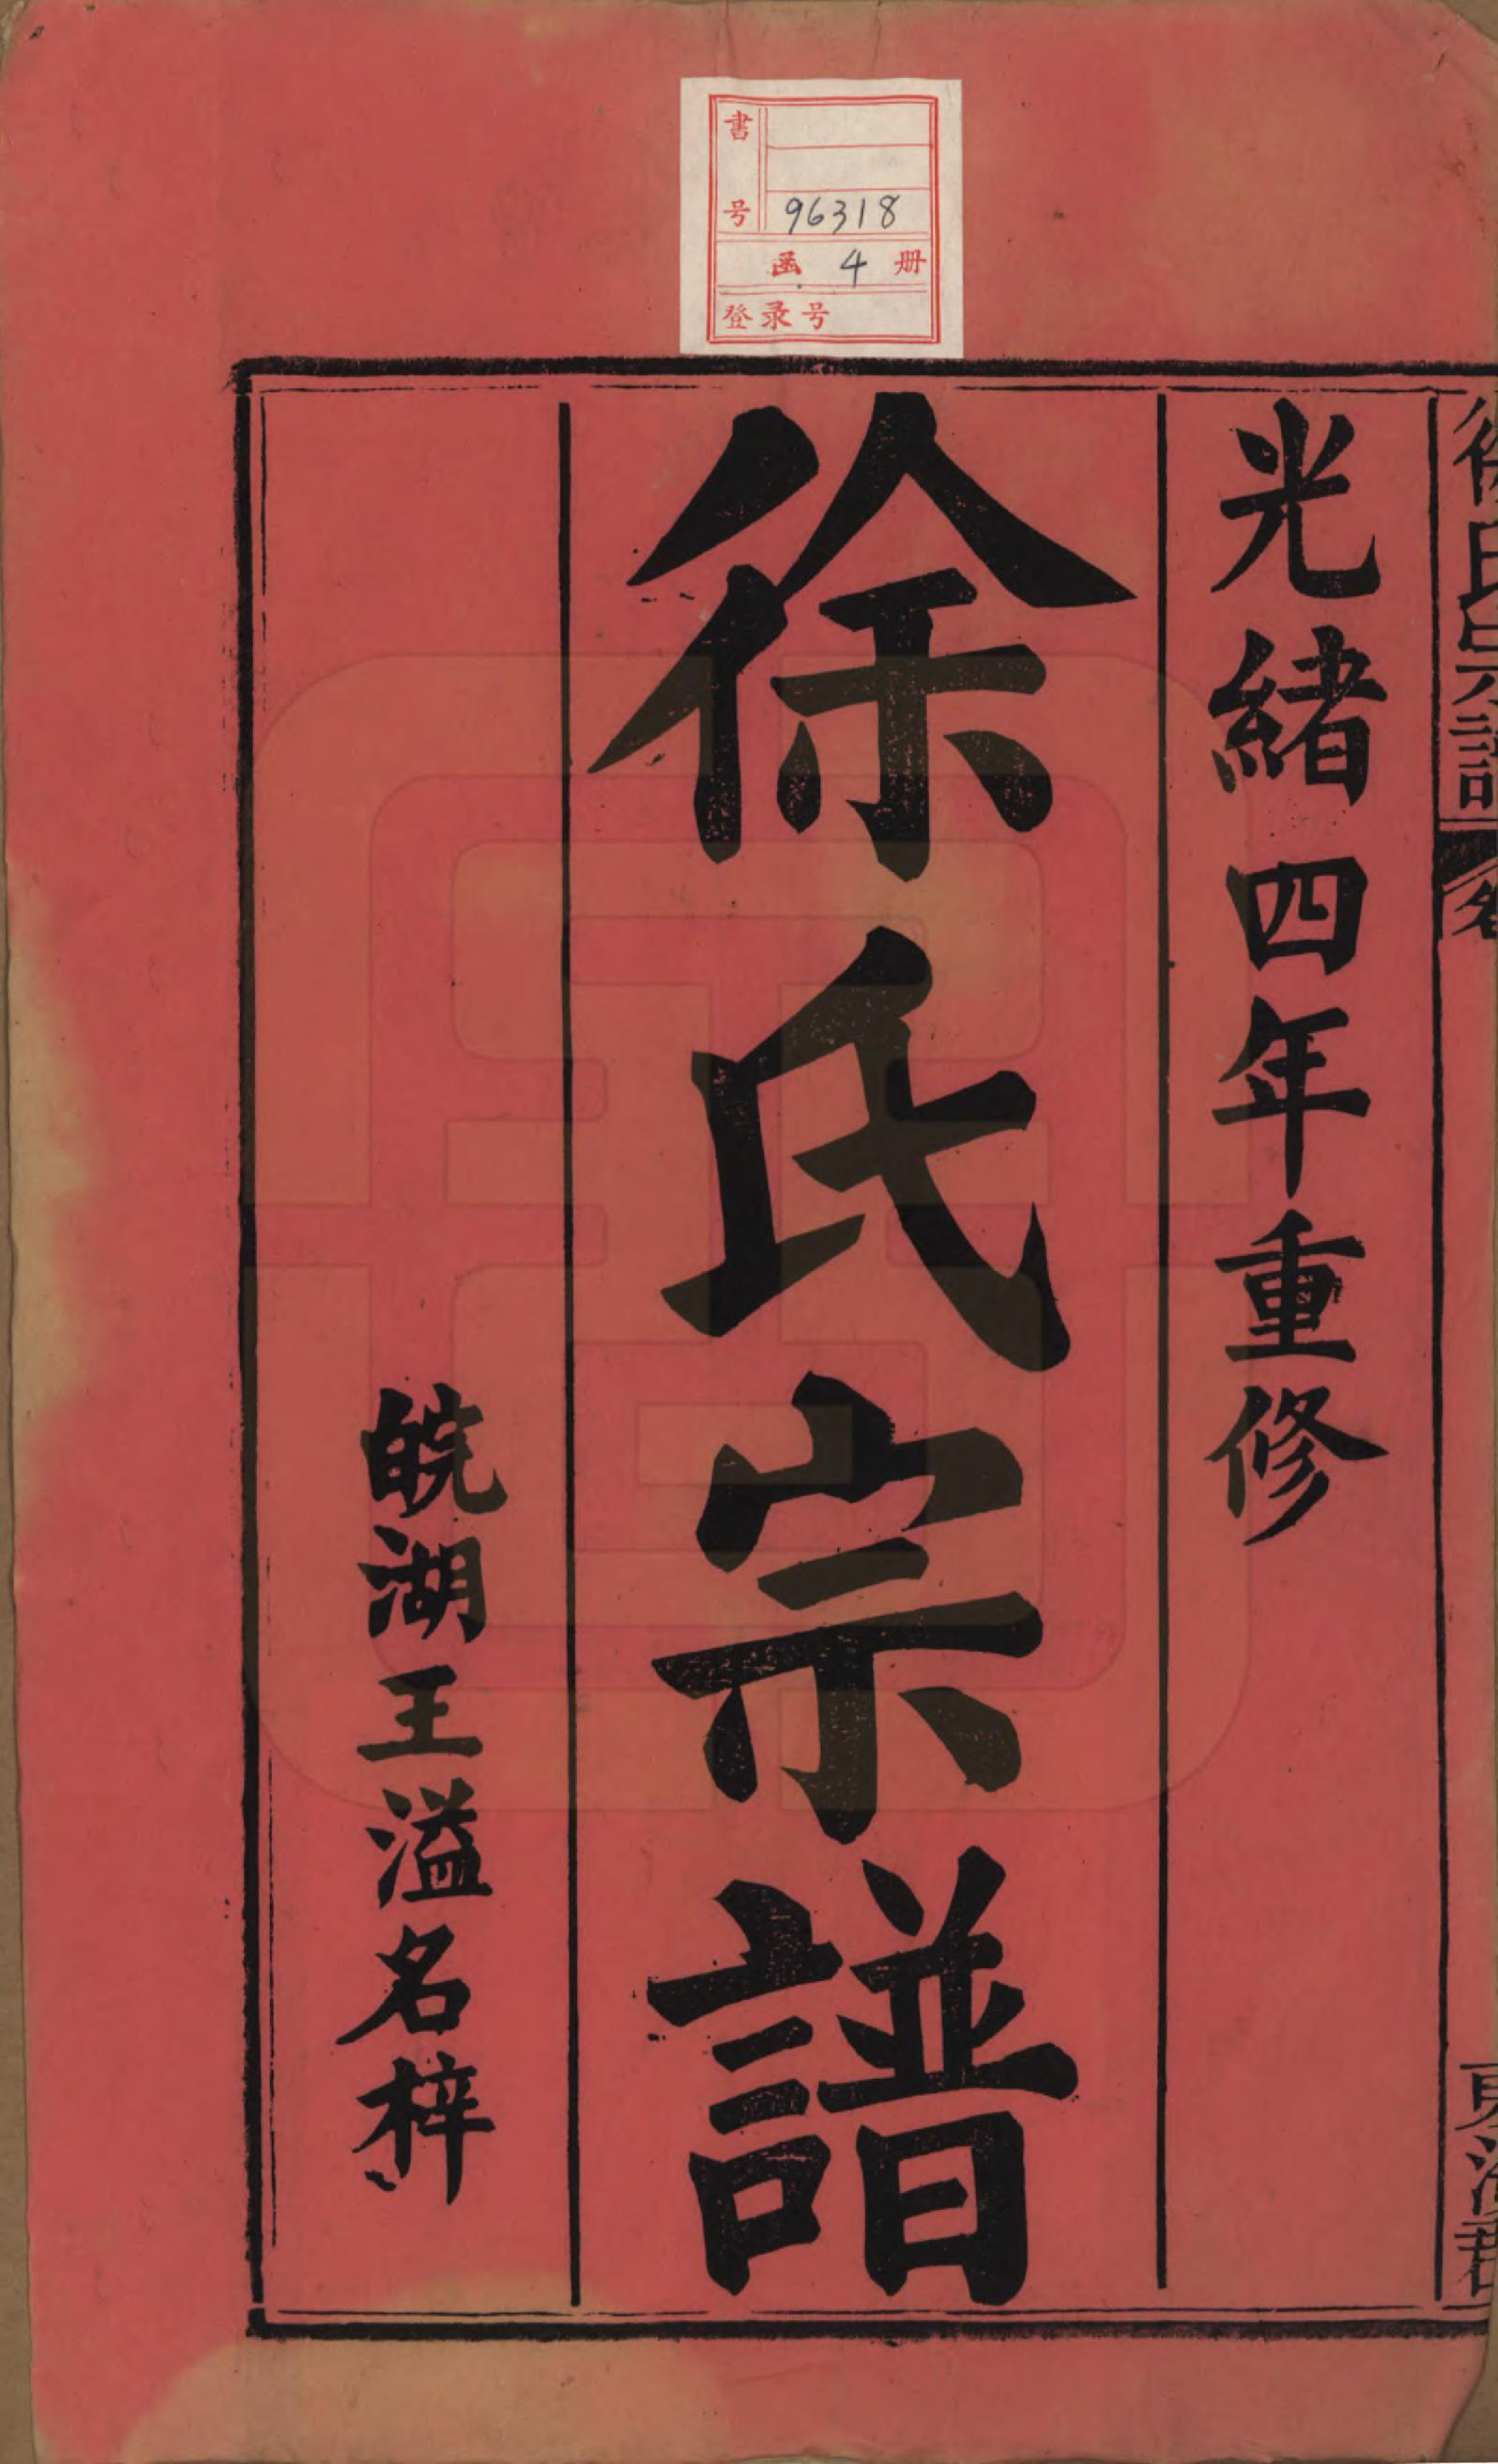 書号 96318
函 4 册
登录号
光緒四年重修
徐氏宗譜
皖湖王溢名梓
徐氏宗譜
東海郡